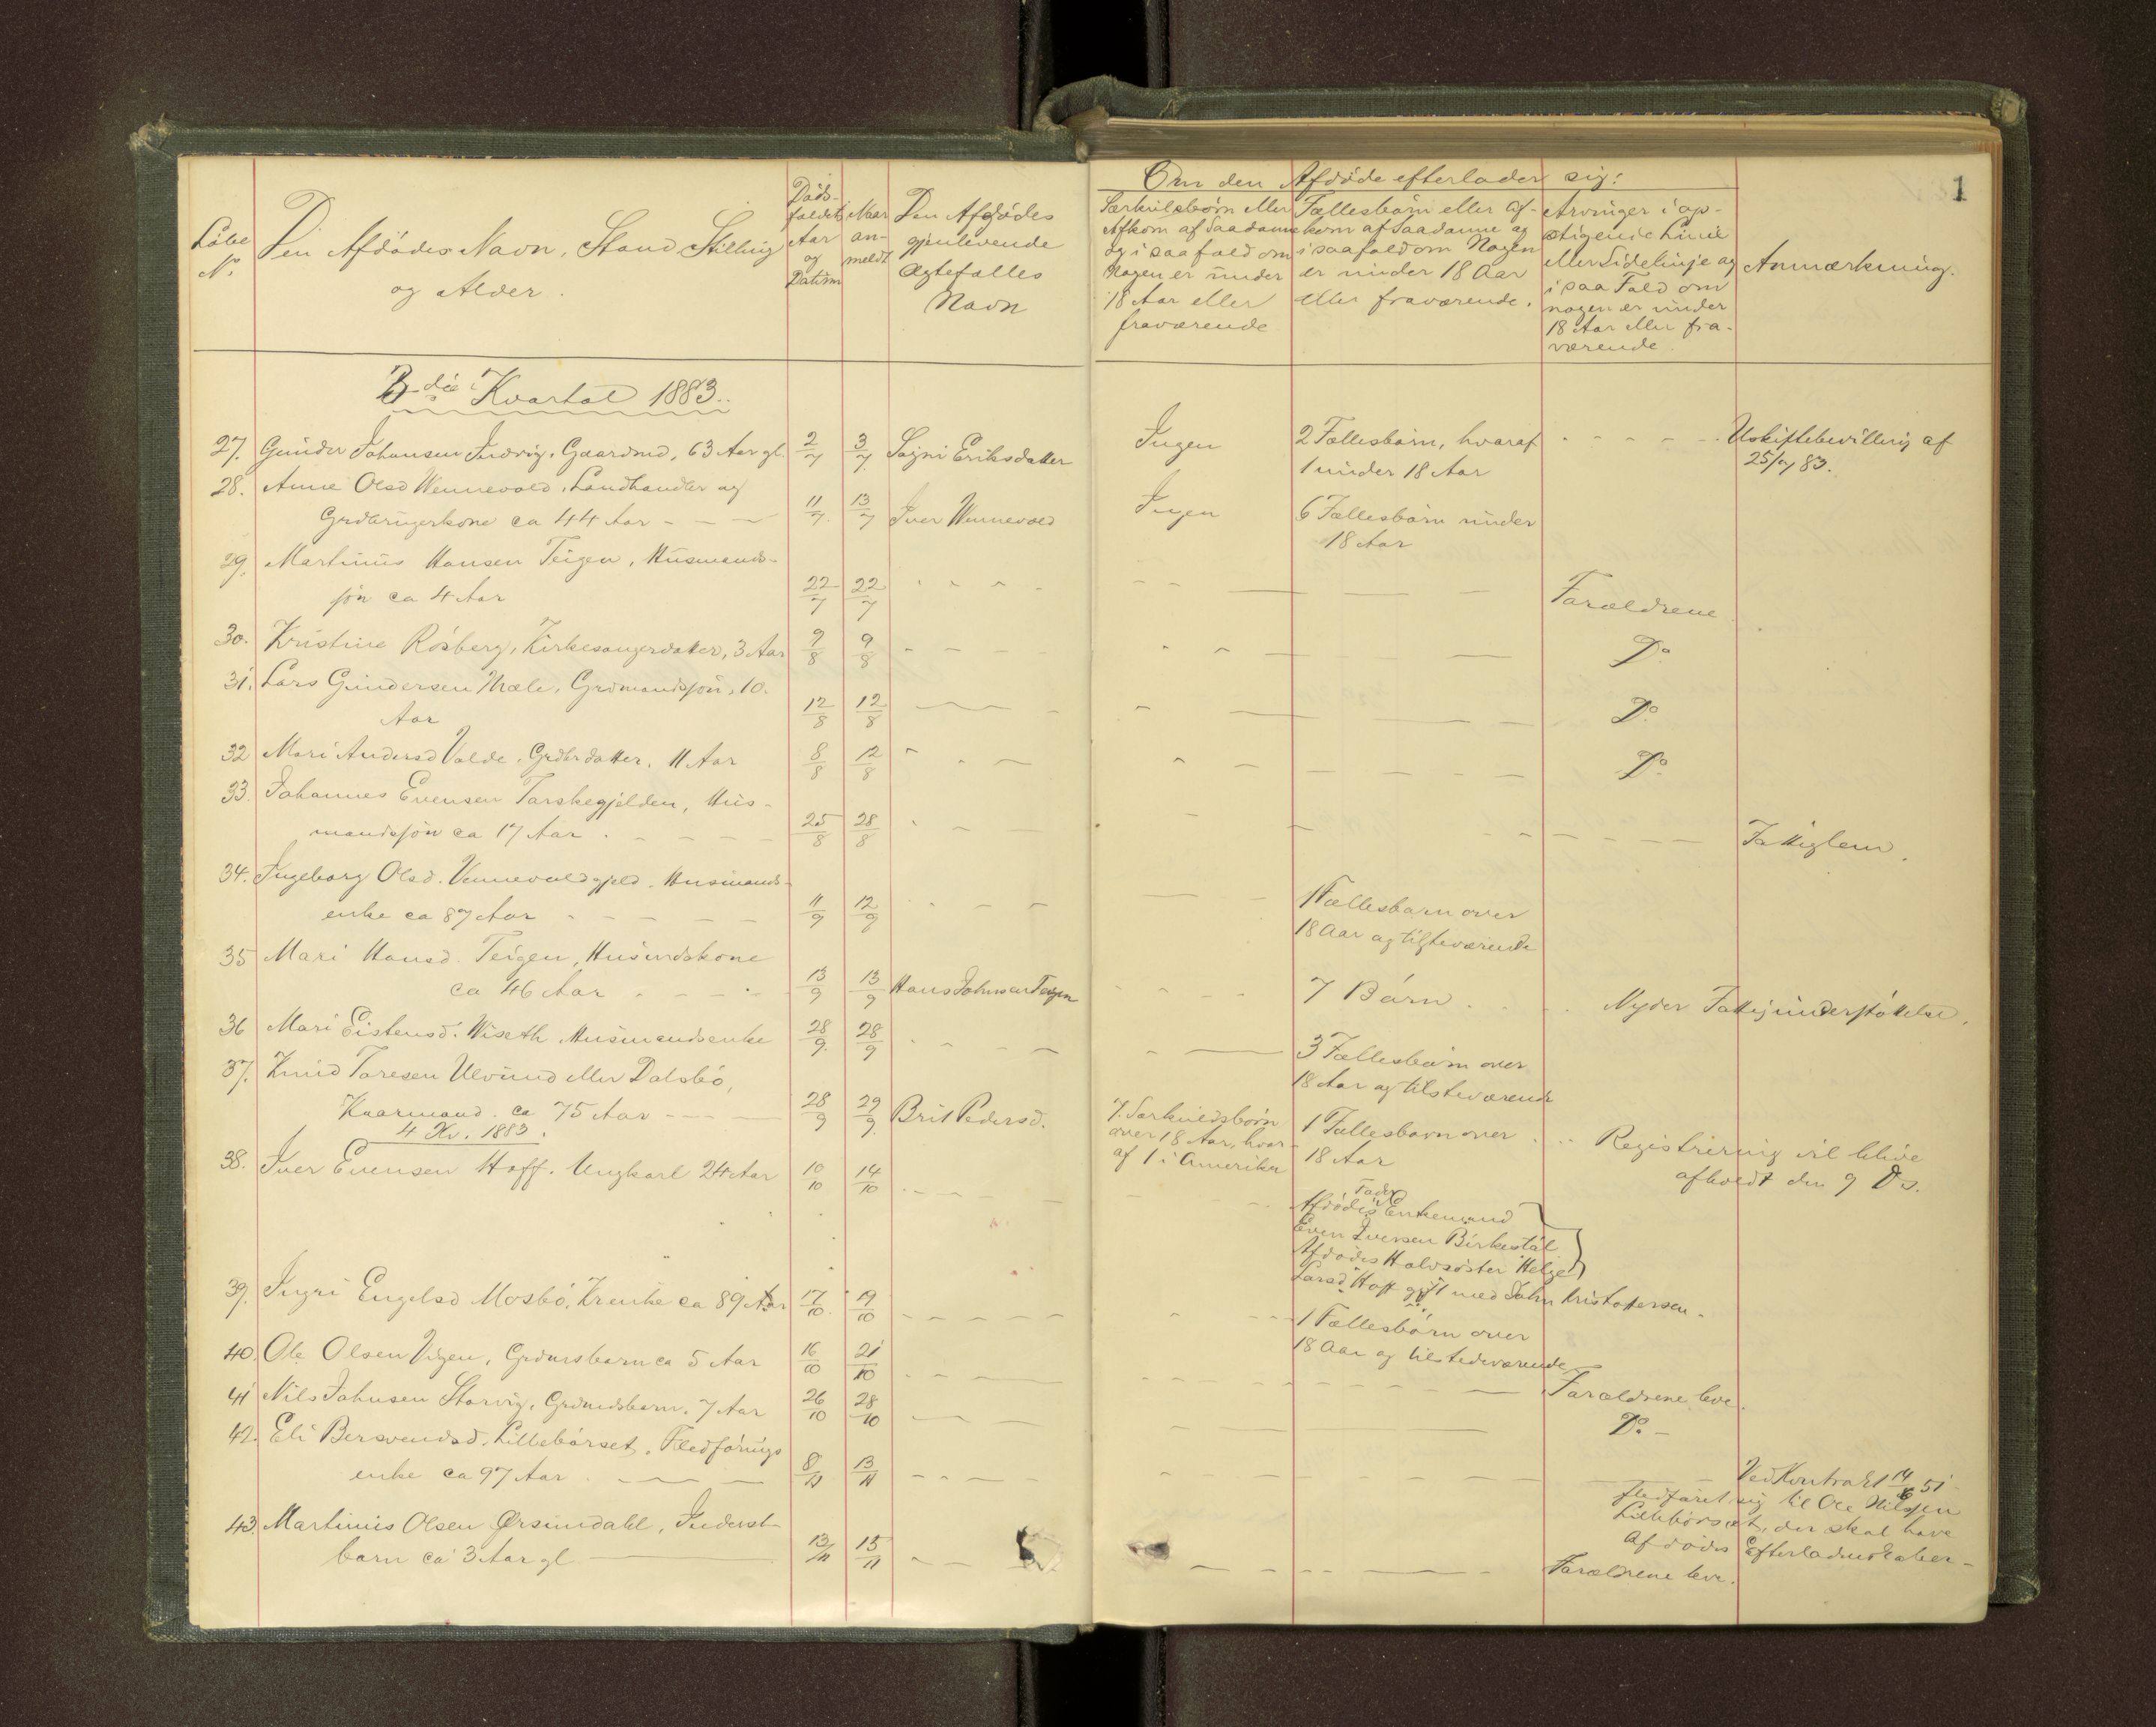 1
Löbe
No.
Den Afdödes Navn, Stand, Stilling
og Alder.
Döds-
faldets
Aar
og
Datum
Naar
an-
meldt
Den Afdödes
gjenlevende
Ægtefælles
Navn
Om den Afdöde efterlader sig:
Særkulsbörn eller
Afkom af Saadanne
og i saafald om
Nogen er under
18 Aar eller
fraværende
Fællesbörn eller Af-
kom af Saadanne og
i saafald om Nogen
er under 18 Aar
eller fraværende.
Arvinger i op-
stigende Linie
eller Sidelinje og
i saa Fald om
nogen er under
18 Aar eller fra-
værende.
Anmærkning.
3die Kvartal 1883.
27. Gunder Johansen Indvig, Gaardmd, 63 Aar gl. 2/7 3/7 Signi Eriksdatter Ingen 2 Fællesbörn, hvoraf Uskiftebevilling af
1 under 18 Aar 25/7 83.
28. Anne Olsd Wennevold, Landhandler og
Grdbrugerkone ca 44 Aar 11/7 13/7 Iver Wennevold Ingen 6 Fællesbörn under
18 Aar
29. Martinus Hansen Teigen, Husmands-
sön ca 4 Aar 22/7 22/7 Forældrene
30. Kristine Rösberg, Kirkesangerdatter, 3 Aar 9/8 9/8 Do
31. Lars Gundersen Mæle, Grdmandssön, 10.
Aar 12/8 12/8 Do
32 Mari Andersd Volde, Grdbrdatter, 11 Aar 8/8 12/8 Do
33. Johannes Evensen Torskegjelden, Hus-
mandssön ca 17 Aar 25/8 28/8 Fattiglem.
34. Ingeborg Olsd. Vennevoldgjeld. Husmands-
enke ca 87 Aar 11/9 12/9 1 Fællesbarn over
18 Aar og tilsteværende
35 Mari Hansd. Teigen, Husmdskone
ca 46 Aar 13/9 13/9 Hans Johnsen Teigen 7 Börn Nyder Fattigunderstöttelse.
36 Mari Eistensd. Wiseth Husmandsenke 28/9 28/9 3 Fællesbörn over
18 Aar og tilsteværende
37. Knud Toresen Ulvund eller Dalsbö,
Kaarmand. ca 75 Aar 28/9 29/9 Brit Pedersd. 7. Særkuldsbörn
over 18 Aar, hvor-
af 1 i Amerika
1 Fællesbarn over
18 Aar
Registrering vil blive
afholdt den 9 Ds.
4 Kv. 1883.
38. Iver Evensen Hoff. Ungkarl 24 Aar 10/10 14/10
Fader
Afdödes Enkemand
Even Iversen Birkestöl
Afdödes Halvsöster Helge
Larsd Hoff gift med John Kristoffersen.
39. Ingri Engelsd Mosbö, Krenke ca 89 Aar 17/10 19/10 1 Fællesbörn over
18 Aar og tilstedeværende
40. Ole Olsen Vigen, Grdmsbarn ca 5 Aar 16/10 21/10 Forældrene leve.
41 Nils Johnsen Storvig, Grdmdsbarn, 7 Aar 26/10 28/10 Do
42. Eli Bersvendsd. Lillebörset, Fledförings
enke ca 97 Aar 8/11 13/11 Ved Kontrakt 14/6 51
fledföret sig til Ole Nilssen
Lillebörset, der skal have
Afdödes Efterladenskaber
43. Martinus Olsen Örsundahl, Inderst-
barn ca 3 Aar gl 13/11 15/11 Forældrene leve.